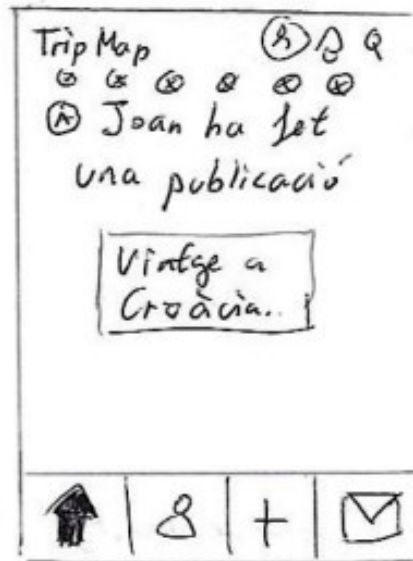 Trip Map
Joan ha fet
una publicació
Vintge a
Croàcia..